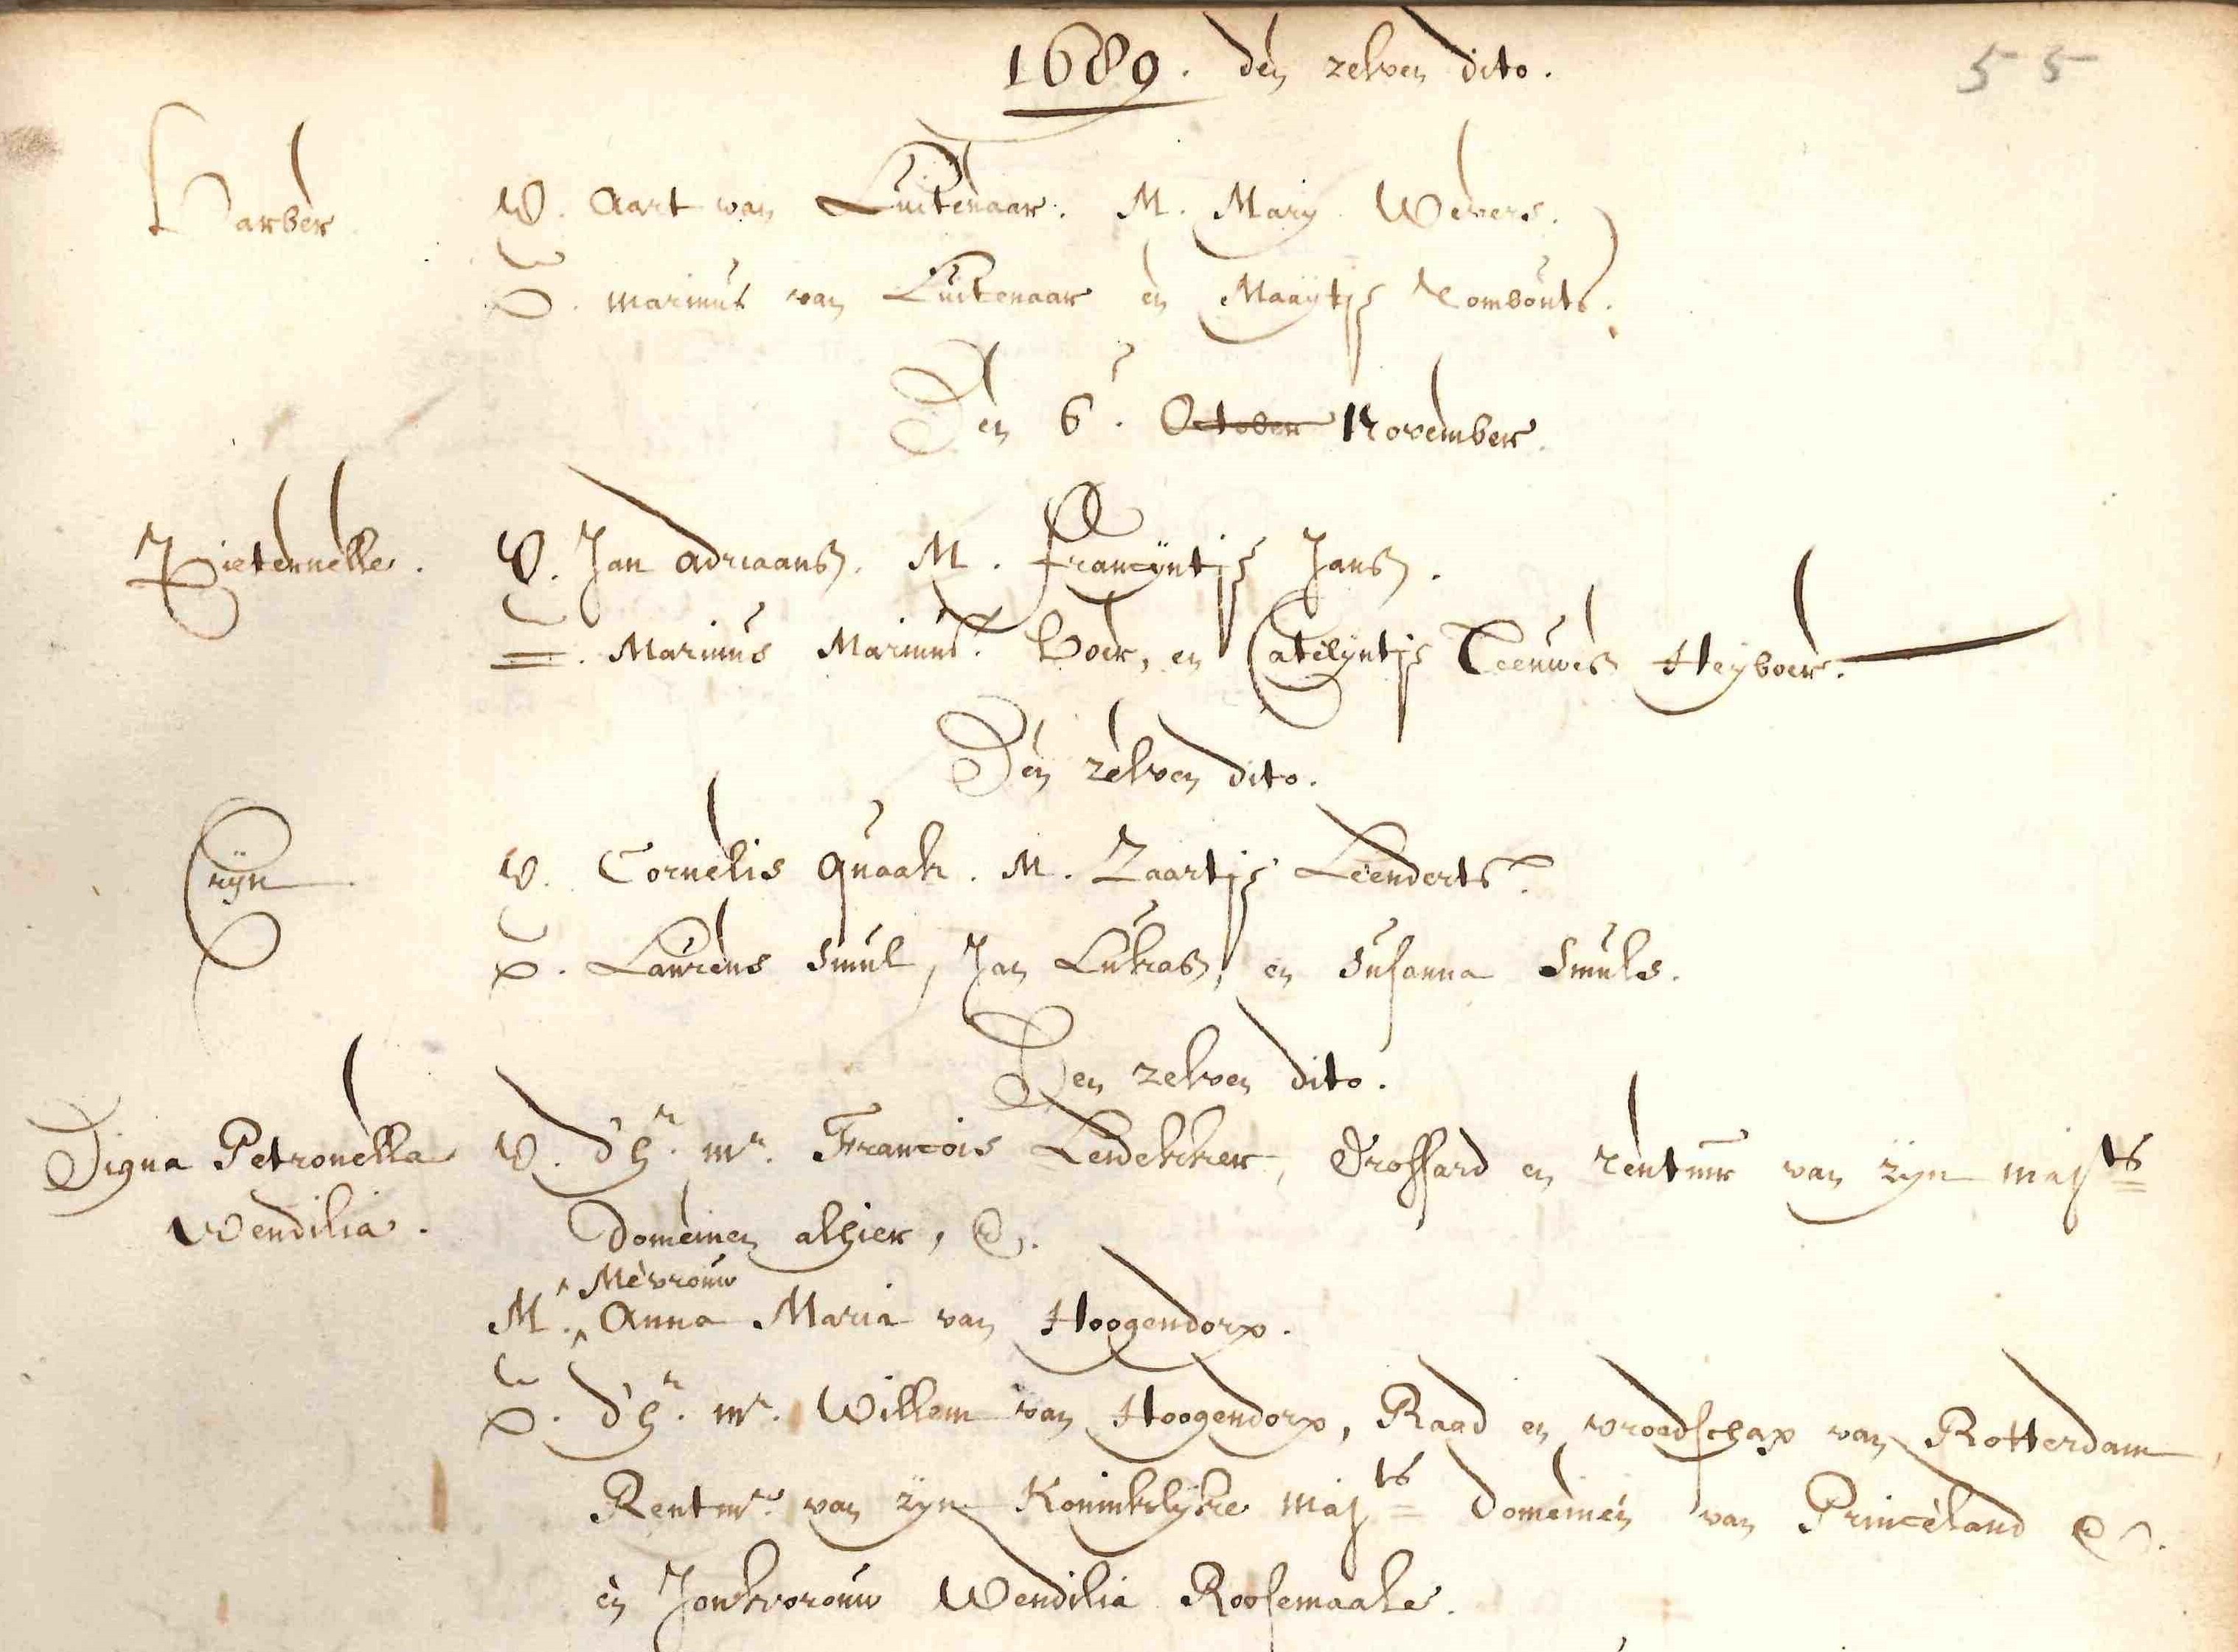 1689. den zelven dito.
55
Barber
V. Aart van Luitenaar. M. Mary Wevers.
Marinus van Luitenaar en Maaytje Rombouts.
Den 6. October November.
Pieternelle.
V. Jan Adriaansz. M. Francyntje Jans.
Marinus Marinusz. Boer, en Catelyntje Leeuwes Heyboer.
Den zelven dito.
Cryn
V. Cornelis Quaak. M. Zaartje Leenderts.
Laurens Smul, Jan Lukasz, en Susanna Smuls.
Den zelven dito.
Digna Petronella
Wendilia.
V. d'hr. mr. François Lendekker, Drossard en rentmr van zyn majts
Domeinen alhier, &.
Mevrouw
M. Anna Maria van Hoogendorp.
d'hr. mr. Willem van Hoogendorp, Raad en vroedschap van Rotterdam,
Rentmr. van zyn Koninklyke majts Domeinen van Princeland &.
en Jonkvrouw Wendilia Roosemaale.